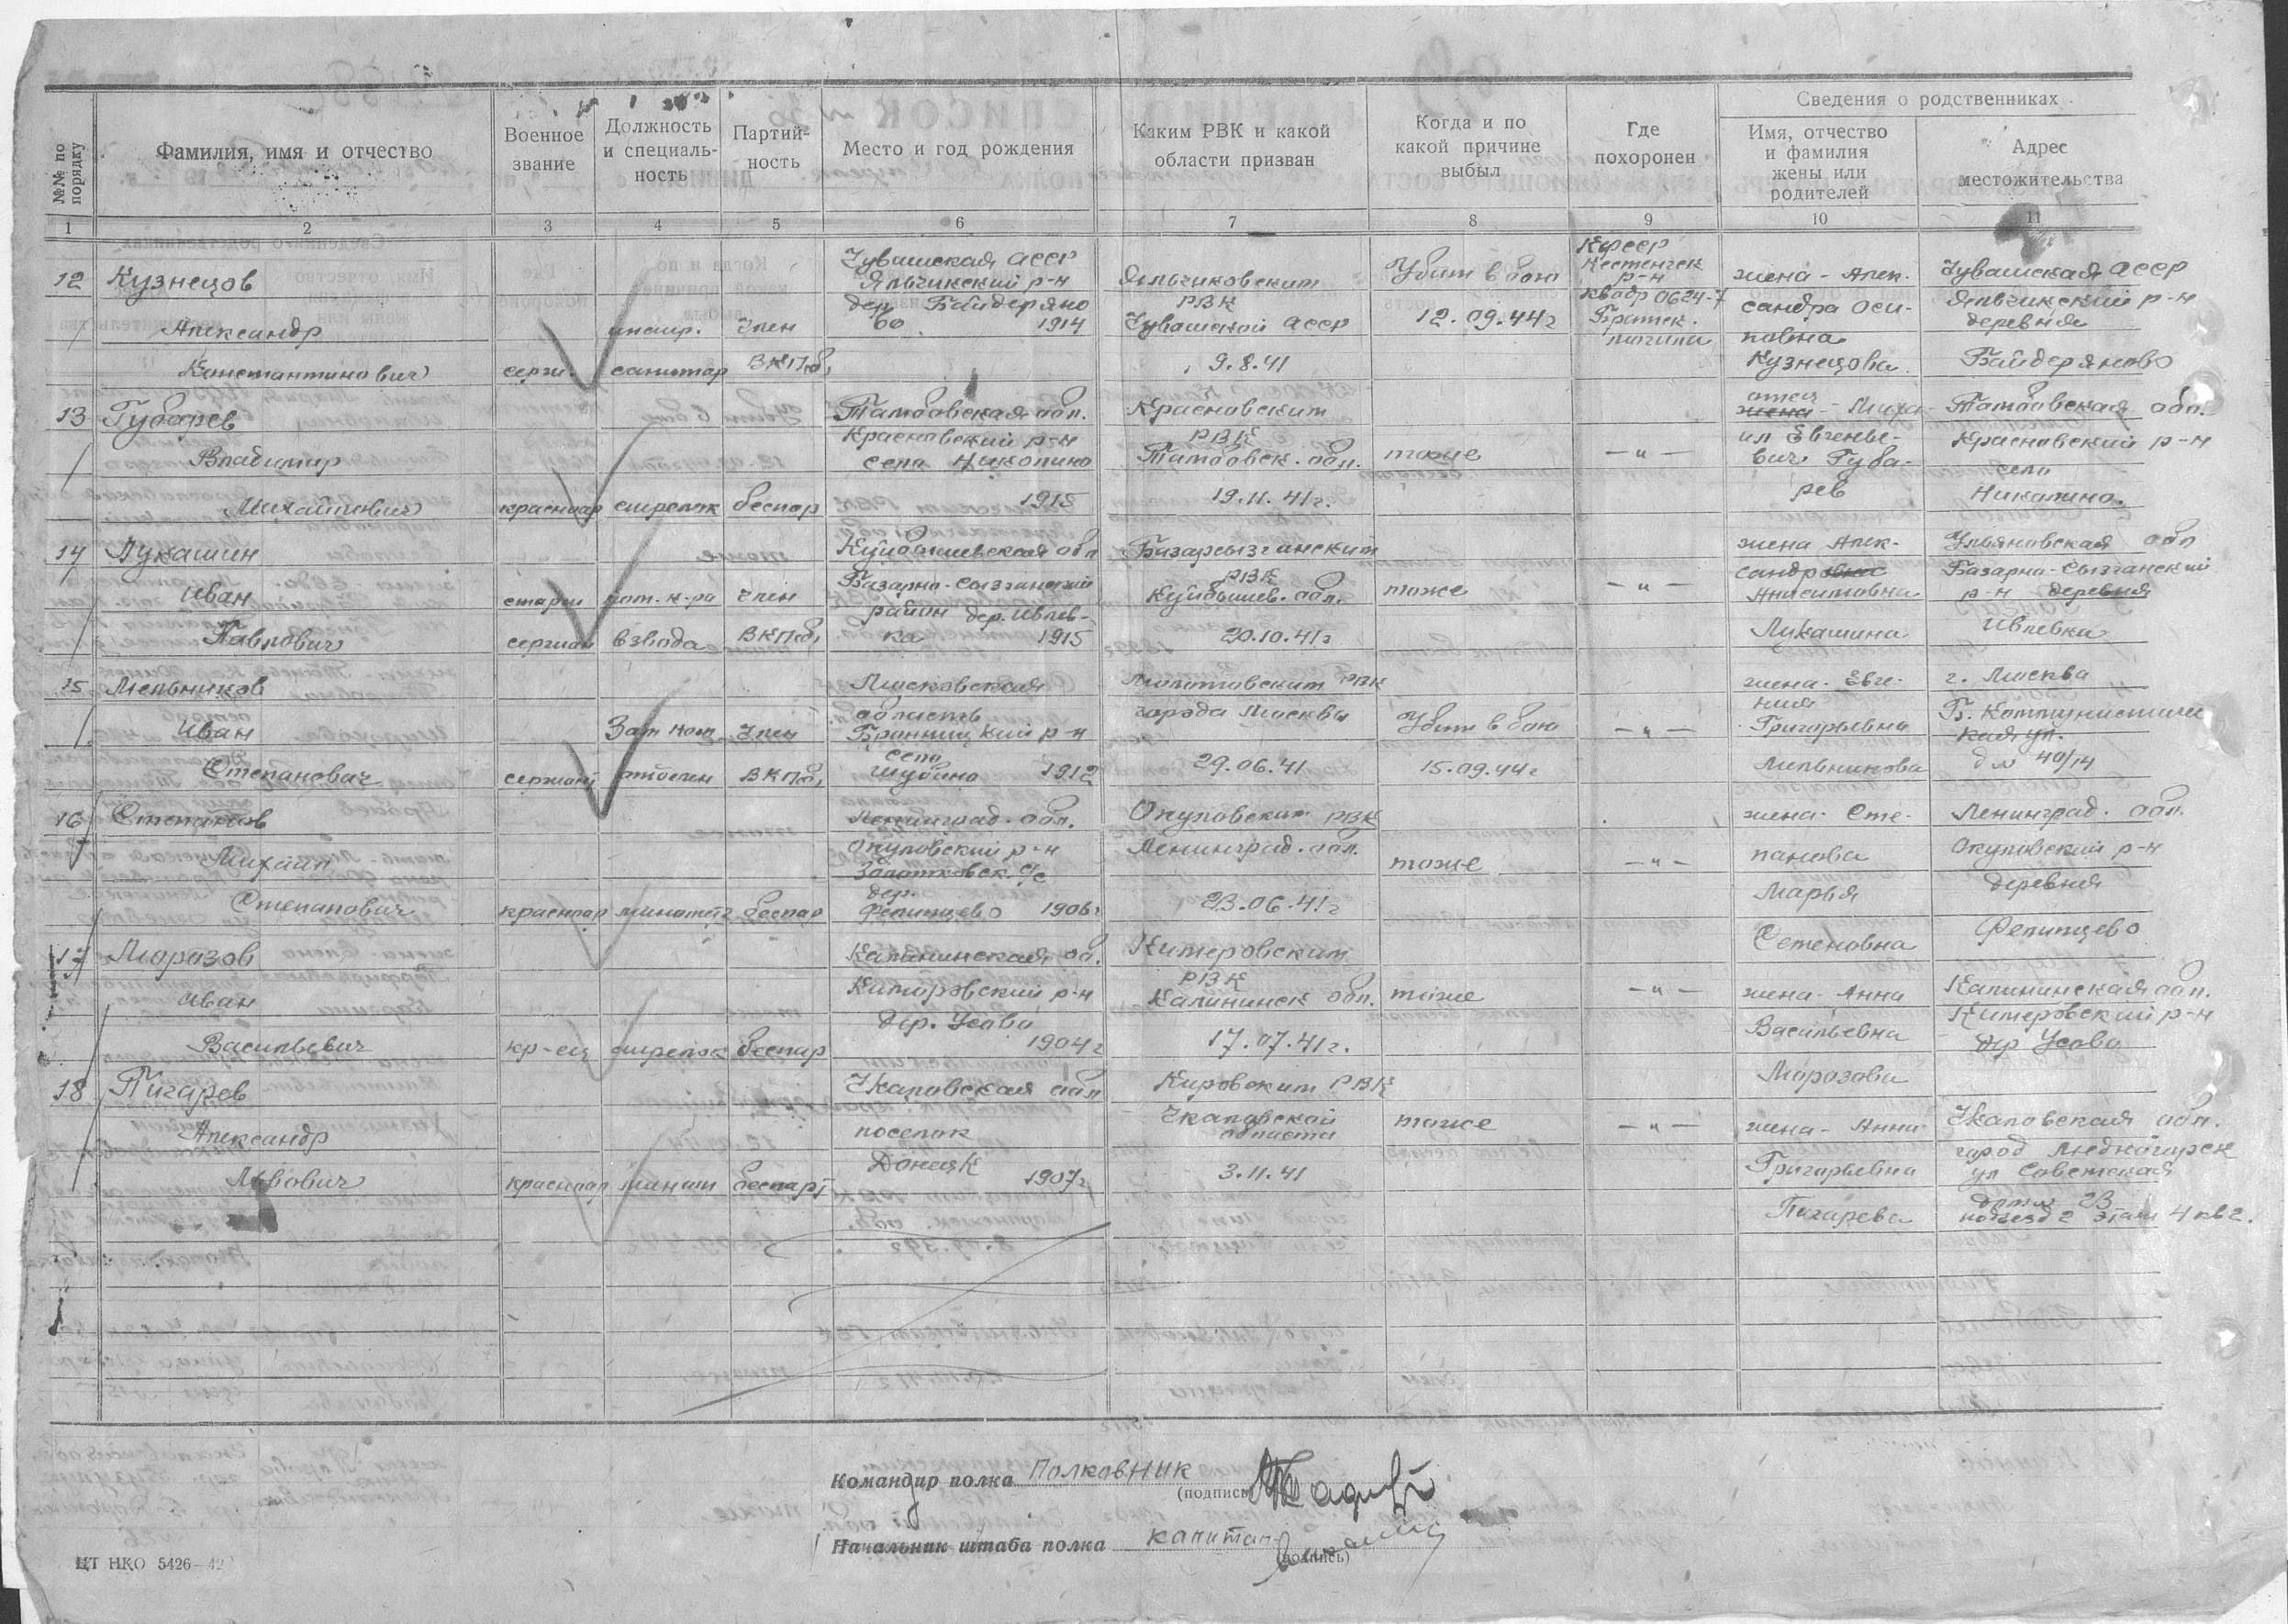 №№ по порядку
Фамилия, имя и отчество
Военное звание
Должность и специаль-ность
Партий-ность
Место и год рождения
Каким РВК и какой области призван
Когда и по какой причине выбыл
Где похоронен
Сведения о родственниках
Имя, отчество и фамилия жены или родителей
Адрес местожительства
1 2 3 4 5 6 7 8 9 10 11
12 Кузнецов
Александр
Константинович
серж. санитар
член ВКПб,
Чувашская АССР
Яльчикский р-н
дер. Байдеряко
во 1914
Яльчиковским
РВК
Чувашской АССР
9.8.41
Убит в бою
12.09.44г
КФССР
Кестеньгск
р-н
квадр 0624-7
Братск.
могила
жена - Алек.
сандра Оси-
повна
Кузнецова
Чувашская АССР
Яльчикский р-н
деревня
Байдеряково
13 Губарев
Владимир
Михайлович
красноар стрелок беспар
Тамбовская обл.
Красновский р-н
село Николино
1915
Красновским
РВК
Тамбовск. обл.
19.11.41г.
тоже
— " —
отец
жена - Миха
ил Евгенье-
вич Губа-
рев
Тамбовская обл.
Красновский р-н
село
Николино.
14 Лукашин
Иван
Павлович
старш сержан
пом. к-ра взвода
член ВКПб,
Куйбышевская обл
Базарно-Сызганский
район дер. Ивлев-
ка 1915
Базарсызганским
РВК
Куйбышев. обл.
20.10.41г
тоже
— " —
жена Алек-
сандровна
Анисимовна
Лукашина
Ульяновская обл
Базарно-Сызганский
р-н деревня
Ивлевка
15 Мельников
Иван
Степанович
сержант
Зам ком отделен
член ВКПб,
Московская
область
Бронницкий р-н
село
Шубино 1912
Молотовским РВК
города Москвы
29.06.41
Убит в бою
15.09.44г
— " —
жена - Евге-
ния
Григорьевна
Мельникова
г. Москва
Б. Коммунистиче
ская ул.
д № 40/14
16 Степанов
Михаил
Степанович
красноар минометч беспар
Ленинград. обл.
Окуловский р-н
с/с
дер.
Филипцево 1906г
Окуловским РВК
Ленинград. обл.
23.06.41г
тоже
— " —
жена - Сте-
панова
Марья
Семеновна
Ленинград. обл.
Окуловский р-н
деревня
Филипцево
17 Морозов
Иван
Васильевич
кр-ец стрелок беспар
Калининская об.
Кимеровский р-н
дер. Усово
1904г
Кимеровским
РВК
Калининск обл.
17.07.41г.
тоже
— " —
жена - Анна
Васильевна
Морозова
Калининская обл.
Кимеровский р-н
дер Усово
18 Пигарев
Александр
Львович
красноар миномт беспарт
Чкаловская обл
поселок
Донецк 1907г
Кировским РВК
Чкаловской
области
3.11.41
тоже
— " —
жена - Анна
Григорьевна
Пигарева
Чкаловская обл.
город Медногорск
ул Советская
дом № 23
подъезд 2 этаж 4 кв 2.
Командир полка Полковник
(подпись)
Начальник штаба полка капитан
(подпись)
ЦТ НКО 5426—42